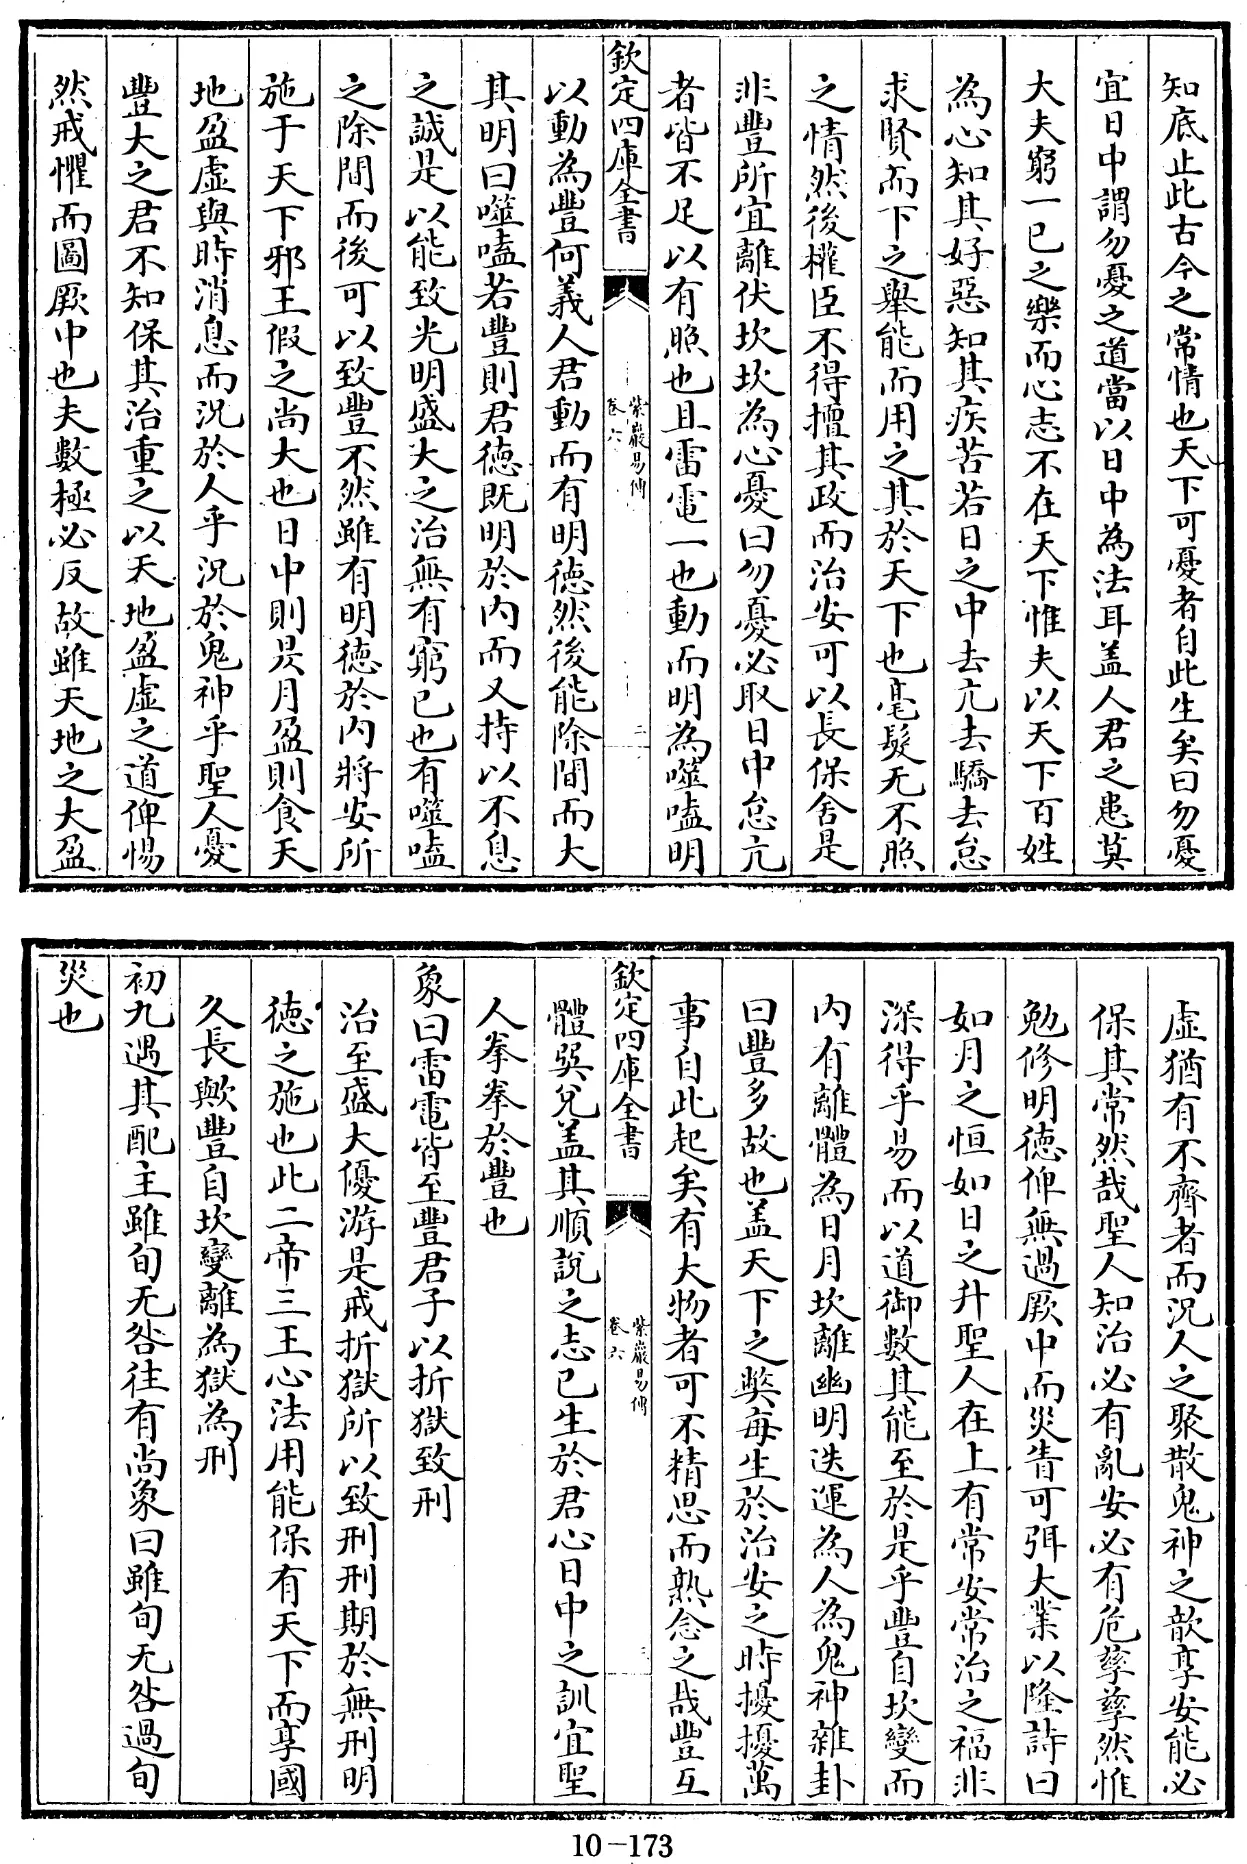 知底止此古今之常情也天下可憂者自此生矣曰勿憂
宜日中謂勿憂之道當以日中為法耳盖人君之患莫
大夫窮一己之樂而心志不在天下惟夫以天下百姓
為心知其好惡知其疾苦若日之中去亢去驕去怠
求賢而下之舉能而用之其於天下也毫髮无不照
之情然後權臣不得擅其政而治安可以長保舍是
非豐所宜離伏坎坎為心憂曰勿憂必取日中怠亢
者皆不足以有照也且雷電一也動而明為噬嗑明
欽定四庫全書
紫巖易傳
卷六
二
以動為豐何義人君動而有明徳然後能除間而大
其明曰噬嗑若豐則君徳既明於内而又持以不息
之誠是以能致光明盛大之治無有窮已也有噬嗑
之除間而後可以致豐不然雖有明徳於内將安所
施于天下邪王假之尚大也日中則昃月盈則食天
地盈虛與時消息而況於人乎況於鬼神乎聖人憂
豐大之君不知保其治重之以天地盈虛之道俾惕
然戒懼而圖厥中也夫數極必反故雖天地之大盈
虛猶有不齊者而況人之聚散鬼神之歆享安能必
保其常然哉聖人知治必有亂安必有危孳孳然惟
勉修明徳俾無過厥中而災眚可弭大業以隆詩曰
如月之恒如日之升聖人在上有常安常治之福非
深得乎易而以道御數其能至於是乎豐自坎變而
内有離體為日月坎離幽明迭運為人為鬼神雜卦
曰豐多故也盖天下之弊每生於治安之時擾擾萬
事自此起矣有大物者可不精思而熟念之哉豐互
欽定四庫全書
紫巖易傳
卷六
三
體巽兌盖其順說之志已生於君心日中之訓宜聖
人拳拳於豐也
象曰雷電皆至豐君子以折獄致刑
治至盛大優游是戒折獄所以致刑刑期於無刑明
徳之施也此二帝三王心法用能保有天下而享國
久長歟豐自坎變離為獄為刑
初九遇其配主雖旬无咎往有尚象曰雖旬无咎過旬
災也
10-173